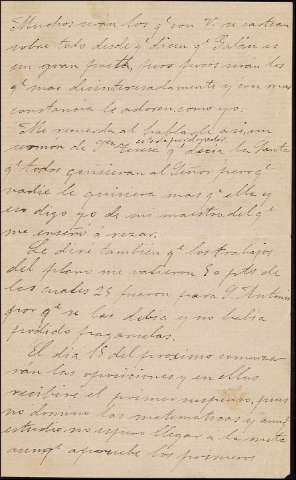 Muchos serán los qe con V. se
sobre todo desde qe dicen qe Galán es
un gran poeta, pero pocos serán los
qe mas desinteresadamente y con mas
constancia le adoren como yo.
Me recuerda al hablarle asi, un
sermon de Teresa y decia la Santa
qe todos quisieran al Señor pero qe
nadie le quisiera mas qe ella y
eso digo yo de mi maestro del qe
me enseñó a rezar.
Le diré tambien qe los trabajos
del plano me valieron 50 pts de
las cuales 25 fueron para S. Antonio
por qe se las debia y no habia
podido pagarselas.
El dia 15 del proximo comenza-
ran las oposiciones y en ellas
recibiré el primer suspenso, pues
no domino las matematicas y aunqe
estudio, no espero llegar a la meta
aunqe aproveche los primeros